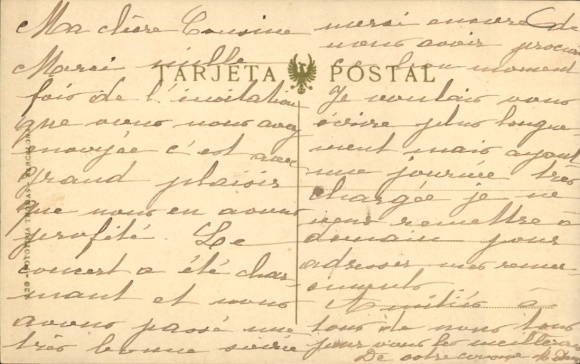 Ma chère Cousine
Merci mille
fois de l'invitation
que vous nous avez
envoyée c'est avec
grand plaisir
que nous en avons
profité. Le
concert a été char-
mant et nous
avons passé une
très bonne soirée
merci encore de
nous avoir procuré
ce bon moment
Je voulais vous
écrire plus longue
ment mais ayant
une journée très
chargée je ne
veux remettre a
demain pour
adresser mes remer
ciements.
Amitiés à
tous de nous tous
pour vous les meilleures
De votre cousine
TARJETA POSTAL